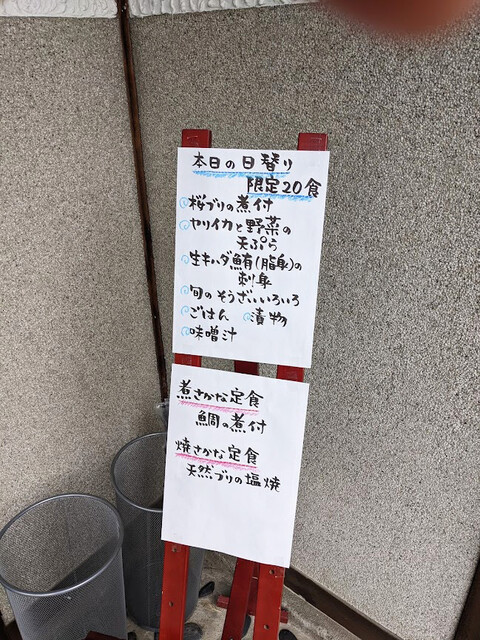 本日の日替り
限定20食
桜ブリの煮付
ヤリイカと野菜の
天ぷら
生キハダ鮪(脂身)の
刺身
旬のそうざいいろいろ
ごはん 漬物
味噌汁
煮さかな定食
鯛の煮付
焼さかな定食
天然ブリの塩焼